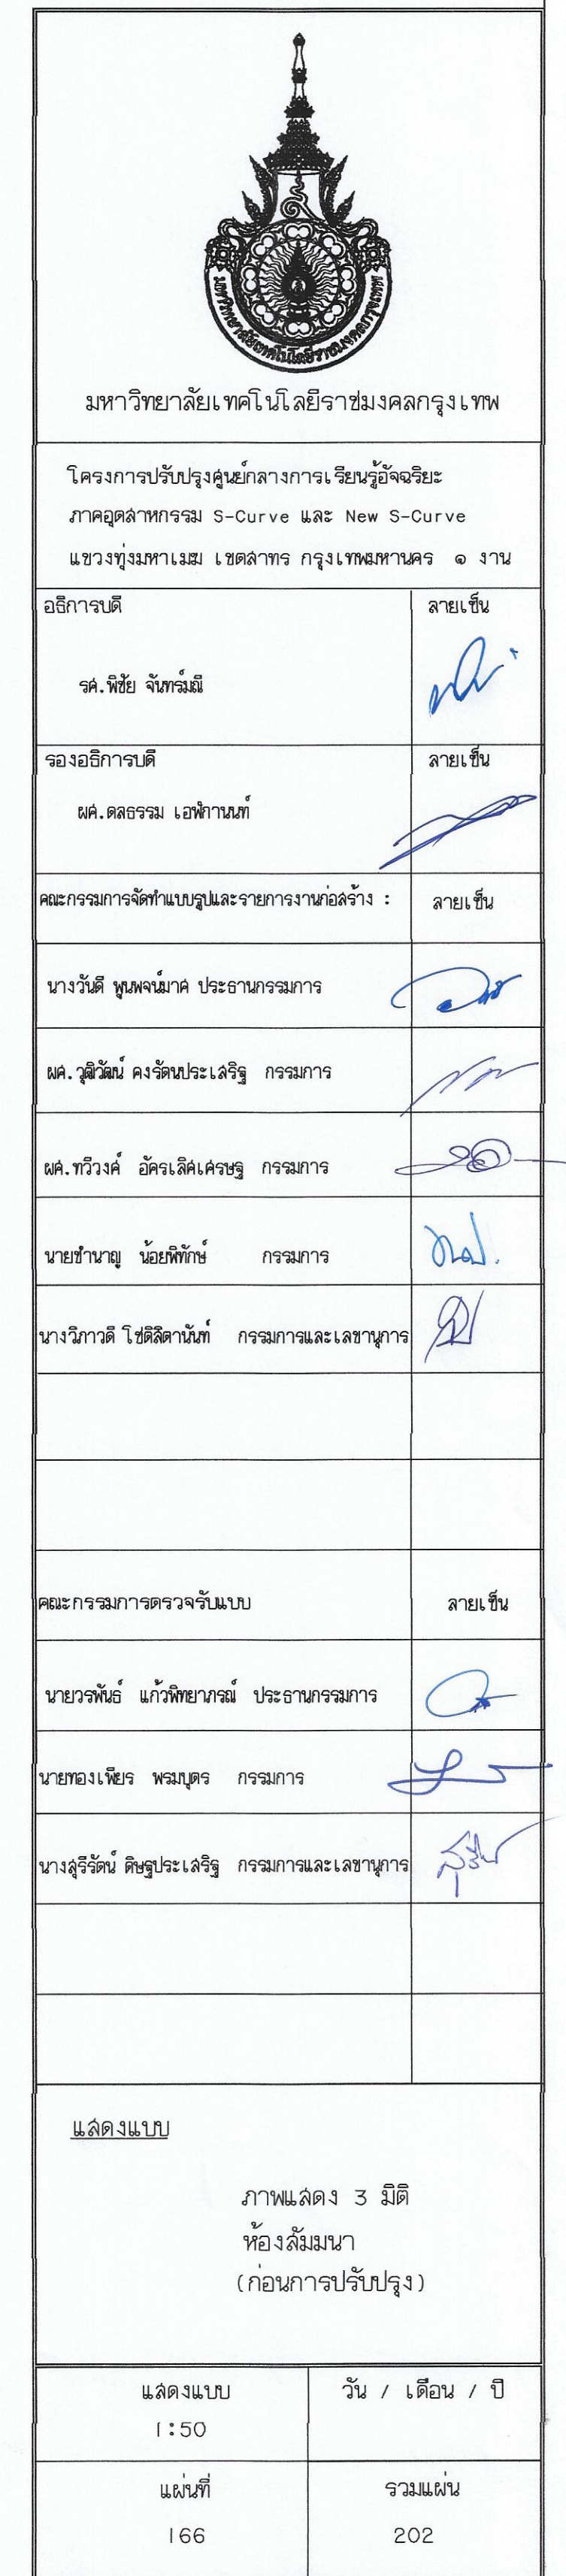 มหาวิทยาลัยเทคโนโลยีราชมงคลกรุงเทพ
มหาวิทยาลัยเทคโนโลยีราชมงคลกรุงเทพ
โครงการปรับปรุงศูนย์กลางการเรียนรู้อัจฉริยะ
ภาคอุตสาหกรรม S-Curve และ New S-Curve
แขวงทุ่งมหาเมฆ เขตสาทร กรุงเทพมหานคร ๑ งาน
อธิการบดี ลายเซ็น
รศ.พิชัย จันทร์มณี
รองอธิการบดี ลายเซ็น
ผศ.ดลธรรม เอฬกานนท์
คณะกรรมการจัดทำแบบรูปและรายการงานก่อสร้าง : ลายเซ็น
นางวันดี พูนพจน์มาศ ประธานกรรมการ
ผศ.วุฒิวัฒน์ คงรัตนประเสริฐ กรรมการ
ผศ.ทวีวงศ์ อัครเลิศเศรษฐ กรรมการ
นายชำนาญ น้อยพิทักษ์ กรรมการ
นางวิภาวดี โชติลิตานันท์ กรรมการและเลขานุการ
คณะกรรมการตรวจรับแบบ ลายเซ็น
นายวรพันธ์ แก้วพิทยาภรณ์ ประธานกรรมการ
นายทองเพียร พรมบุตร กรรมการ
นางสุรีรัตน์ ดิษฐประเสริฐ กรรมการและเลขานุการ
แสดงแบบ
ภาพแสดง 3 มิติ
ห้องสัมมนา
(ก่อนการปรับปรุง)
แสดงแบบ วัน / เดือน / ปี
1:50
แผ่นที่ รวมแผ่น
166 202